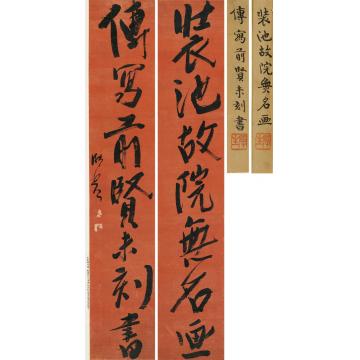 裝池故院無名画
傳寫前賢未刻書
裝池故院無名画
傳寫前賢未刻書